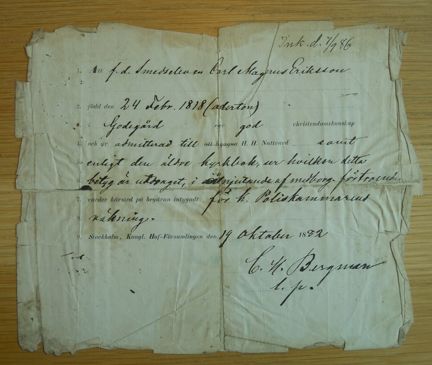 Ink. d. 7/9 86
1. Att f.d. Smedselev en Carl Magnus Eriksson
2.
3. född den 24 Febr. 1818 (aderton)
4. i Godegård god christendomskunskap
5. och är admitterad till att begagna H. H. Nattvard samt
enligt den äldre kyrkbok, ur hvilken detta
betyg är utdraget, i åtnjutande af medborg. förtroende
7. varder härmed på begäran intygadt för k. Poliskammarens
räkning.
Stockholm, Kongl. Hof-Församlingen den 19 Oktober 1882
C. H. Bergman